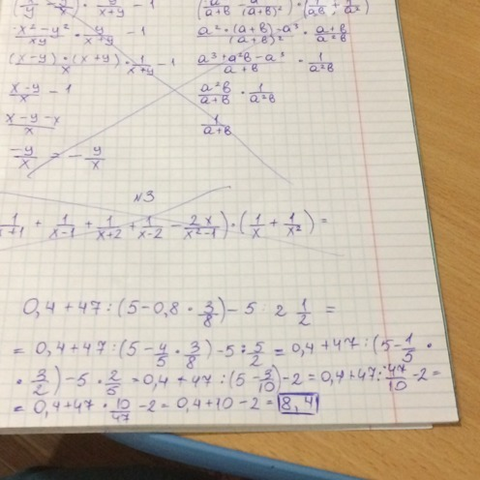 (x/y - y/x) · y/x+y - 1
x²-y²/xy · y/x+y - 1
(x-y)·(x+y)/x · 1/x+y - 1
x-y/x - 1
x-y-x/x
-y/x = - y/x
a²·(a+в)-a³/(a+в)² · a+в/a²в
a³+a²в-a³/a+в · 1/a²в
a²в/a+в · 1/a²в
1/a+в
№3
1/x+1 + 1/x-1 + 1/x+2 + 1/x-2 - 2x/x²-1) · (1/x + 1/x²) =
0,4+47:(5-0,8·3/8)-5:2 1/2 =
= 0,4+47:(5-4/5·3/8)-5:5/2 = 0,4+47:(5-1/5·
·3/2)-5·2/5 = 0,4+47:(5-3/10)-2 = 0,4+47:47/10-2=
= 0,4+47·10/47-2=0,4+10-2=8,4